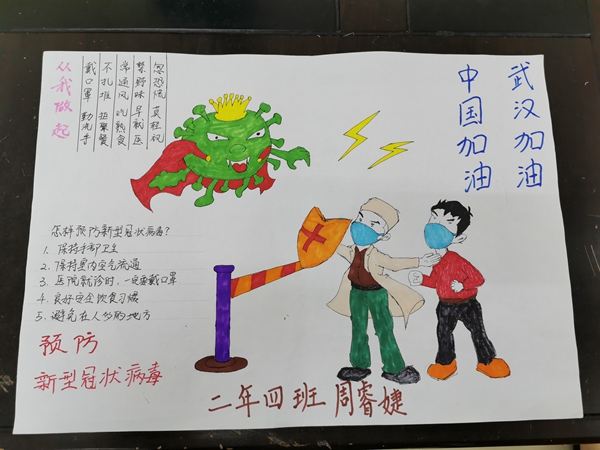 从我做起
戴口罩 勤洗手
不扎堆 拒聚餐
常通风 吃熟食
禁野味 早就医
恐慌
武汉加油
中国加油
怎样预防新型冠状病毒?
1. 保持手部卫生
2. 保持室内空气流通
3. 医院就诊时,一定要戴口罩
4. 良好安全饮食习惯
5. 避免在人多的地方
预防
新型冠状病毒
二年四班 周睿婕